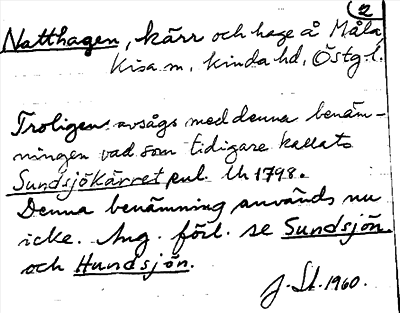 (2
Natthagen, kärr och hage å Måla,
Kisa sn, Kinda hd, Östg. l.
Troligen avságs med denna benäm-
ningen vad som tidigare kallats
Sundsjökärret enl. Uh 1798.
Denna benämning används nu
icke. Ang. förl. se Sundsjön.
och Hundsjön.
J. St. 1960.